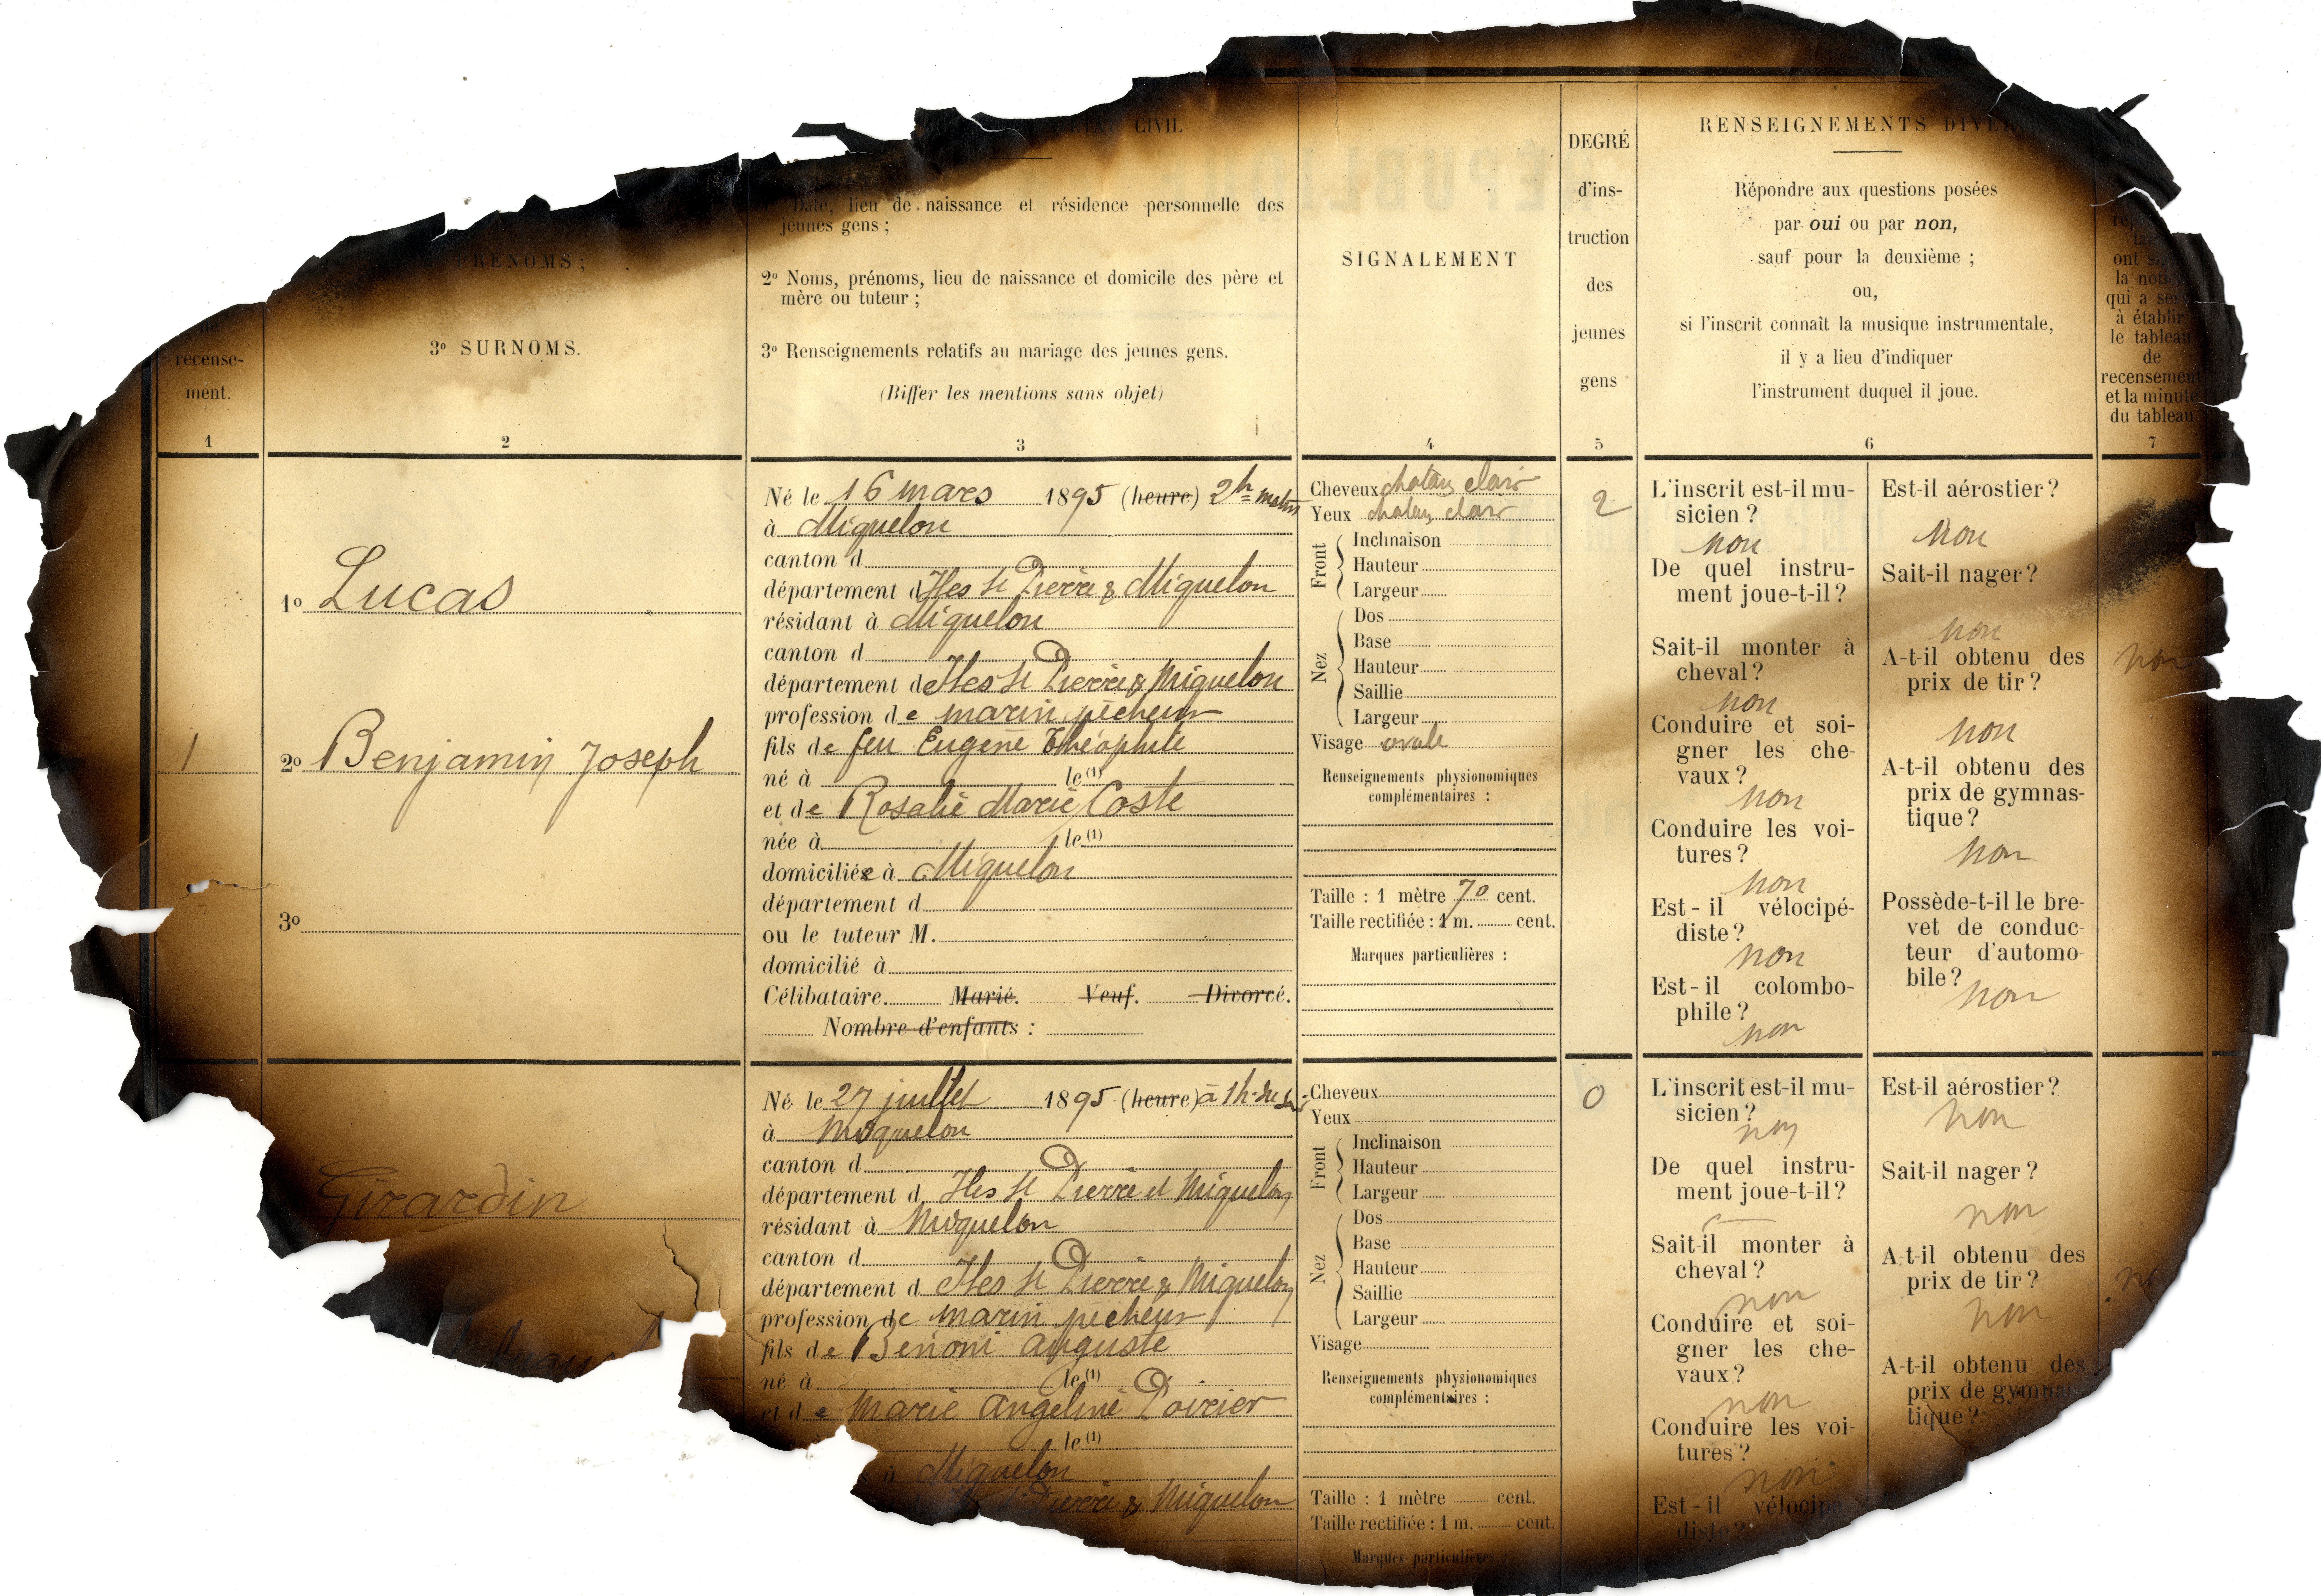 CIVIL
Date, lieu de naissance et résidence personnelle des
jeunes gens ;
2º Noms, prénoms, lieu de naissance et domicile des père et
mère ou tuteur ;
3º Renseignements relatifs au mariage des jeunes gens.
(Biffer les mentions sans objet)
3
PRÉNOMS ;
3º SURNOMS.
2
recense-
ment.
1
SIGNALEMENT
4
DEGRÉ
d'ins-
truction
des
jeunes
gens
5
RENSEIGNEMENTS
Répondre aux questions posées
par oui ou par non,
sauf pour la deuxième ;
ou,
si l'inscrit connaît la musique instrumentale,
il y a lieu d'indiquer
l'instrument duquel il joue.
6
ont
la
qui a
à établir
le tableau
de
recensement
et la minute
du tableau
7
1
1º Lucas
2º Benjamin Joseph
3º
Né le 16 mars 1895 (heure) 2h matin
à Miquelon
canton d
département d Iles St Pierre & Miquelon
résidant à Miquelon
canton d
département d Iles St Pierre & Miquelon
profession de marin pêcheur
fils de feu Eugène Théophile
né à le (1)
et de Rosalie Marie Coste
née à le (1)
domiciliée à Miquelon
département d
ou le tuteur M.
domicilié à
Célibataire. Marié. Veuf. Divorcé.
Nombre d'enfants :
Cheveux chatain clair
Yeux chatain clair
Front
Inclinaison
Hauteur
Largeur
Nez
Dos
Base
Hauteur
Saillie
Largeur
Visage ovale
Renseignements physionomiques
complémentaires :
Taille : 1 mètre 70 cent.
Taille rectifiée : 1 m. cent.
Marques particulières :
2
L'inscrit est-il mu-
sicien ?
non
De quel instru-
ment joue-t-il ?
Sait-il monter à
cheval ?
non
Conduire et soi-
gner les che-
vaux ?
non
Conduire les voi-
tures ?
non
Est-il vélocipé-
diste ?
non
Est-il colombo-
phile ?
non
Est-il aérostier ?
non
Sait-il nager ?
non
A-t-il obtenu des
prix de tir ?
non
A-t-il obtenu des
prix de gymnas-
tique ?
non
Possède-t-il le bre-
vet de conduc-
teur d'automo-
bile ?
non
non
Girardin
Né le 27 juillet 1895 (heure) à 1h.
à Miquelon
canton d
département d Iles St Pierre et Miquelon
résidant à Miquelon
canton d
département d Iles St Pierre & Miquelon
profession de marin pêcheur
fils de Bénoni Auguste
né à le (1)
et de Marie Angeline Poirier
le (1)
à Miquelon
Pierre & Miquelon
Cheveux
Yeux
Front
Inclinaison
Hauteur
Largeur
Nez
Dos
Base
Hauteur
Saillie
Largeur
Visage
Renseignements physionomiques
complémentaires :
Taille : 1 mètre cent.
Taille rectifiée : 1 m. cent.
Marques particulières
0
L'inscrit est-il mu-
sicien ?
non
De quel instru-
ment joue-t-il ?
Sait-il monter à
cheval ?
non
Conduire et soi-
gner les che-
vaux ?
non
Conduire les voi-
tures ?
non
Est-il
diste ?
Est-il aérostier ?
non
Sait-il nager ?
non
A-t-il obtenu des
prix de tir ?
non
A-t-il obtenu des
prix de
tique ?